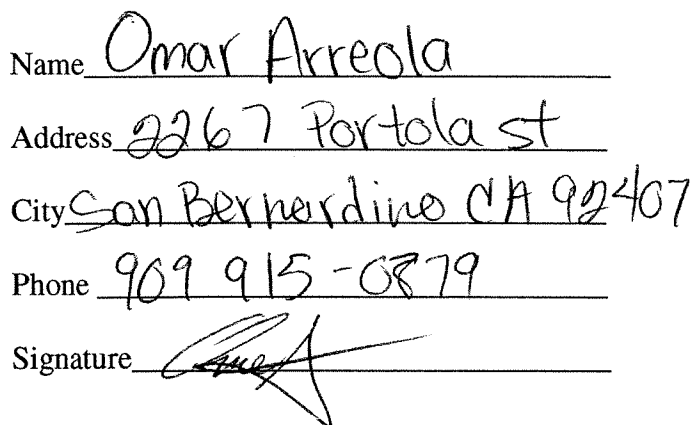 Name Omar Arreola
Address 2267 Portola st
City San Bernardino CA 92407
Phone 909 915-0879
Signature